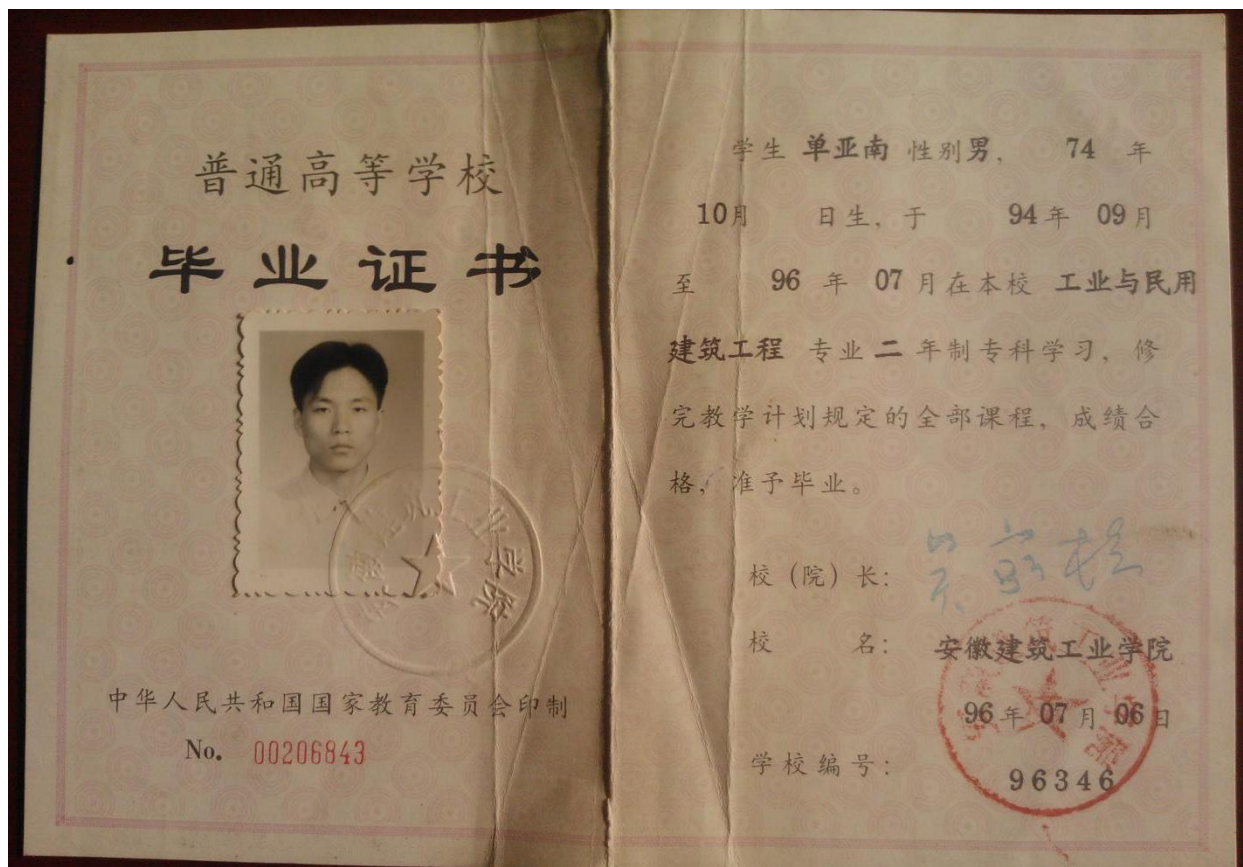 普通高等学校
毕业证书
中华人民共和国国家教育委员会印制
No. 00206843
学生 单亚南 性别男, 74 年
10月 日生, 于 94年 09月
至 96 年 07 月在本校 工业与民用
建筑工程 专业 二 年制专科学习, 修
完教学计划规定的全部课程, 成绩合
格, 准予毕业。
校（院）长:
校 名: 安徽建筑工业学院
96年 07月 06日
学校编号: 96346